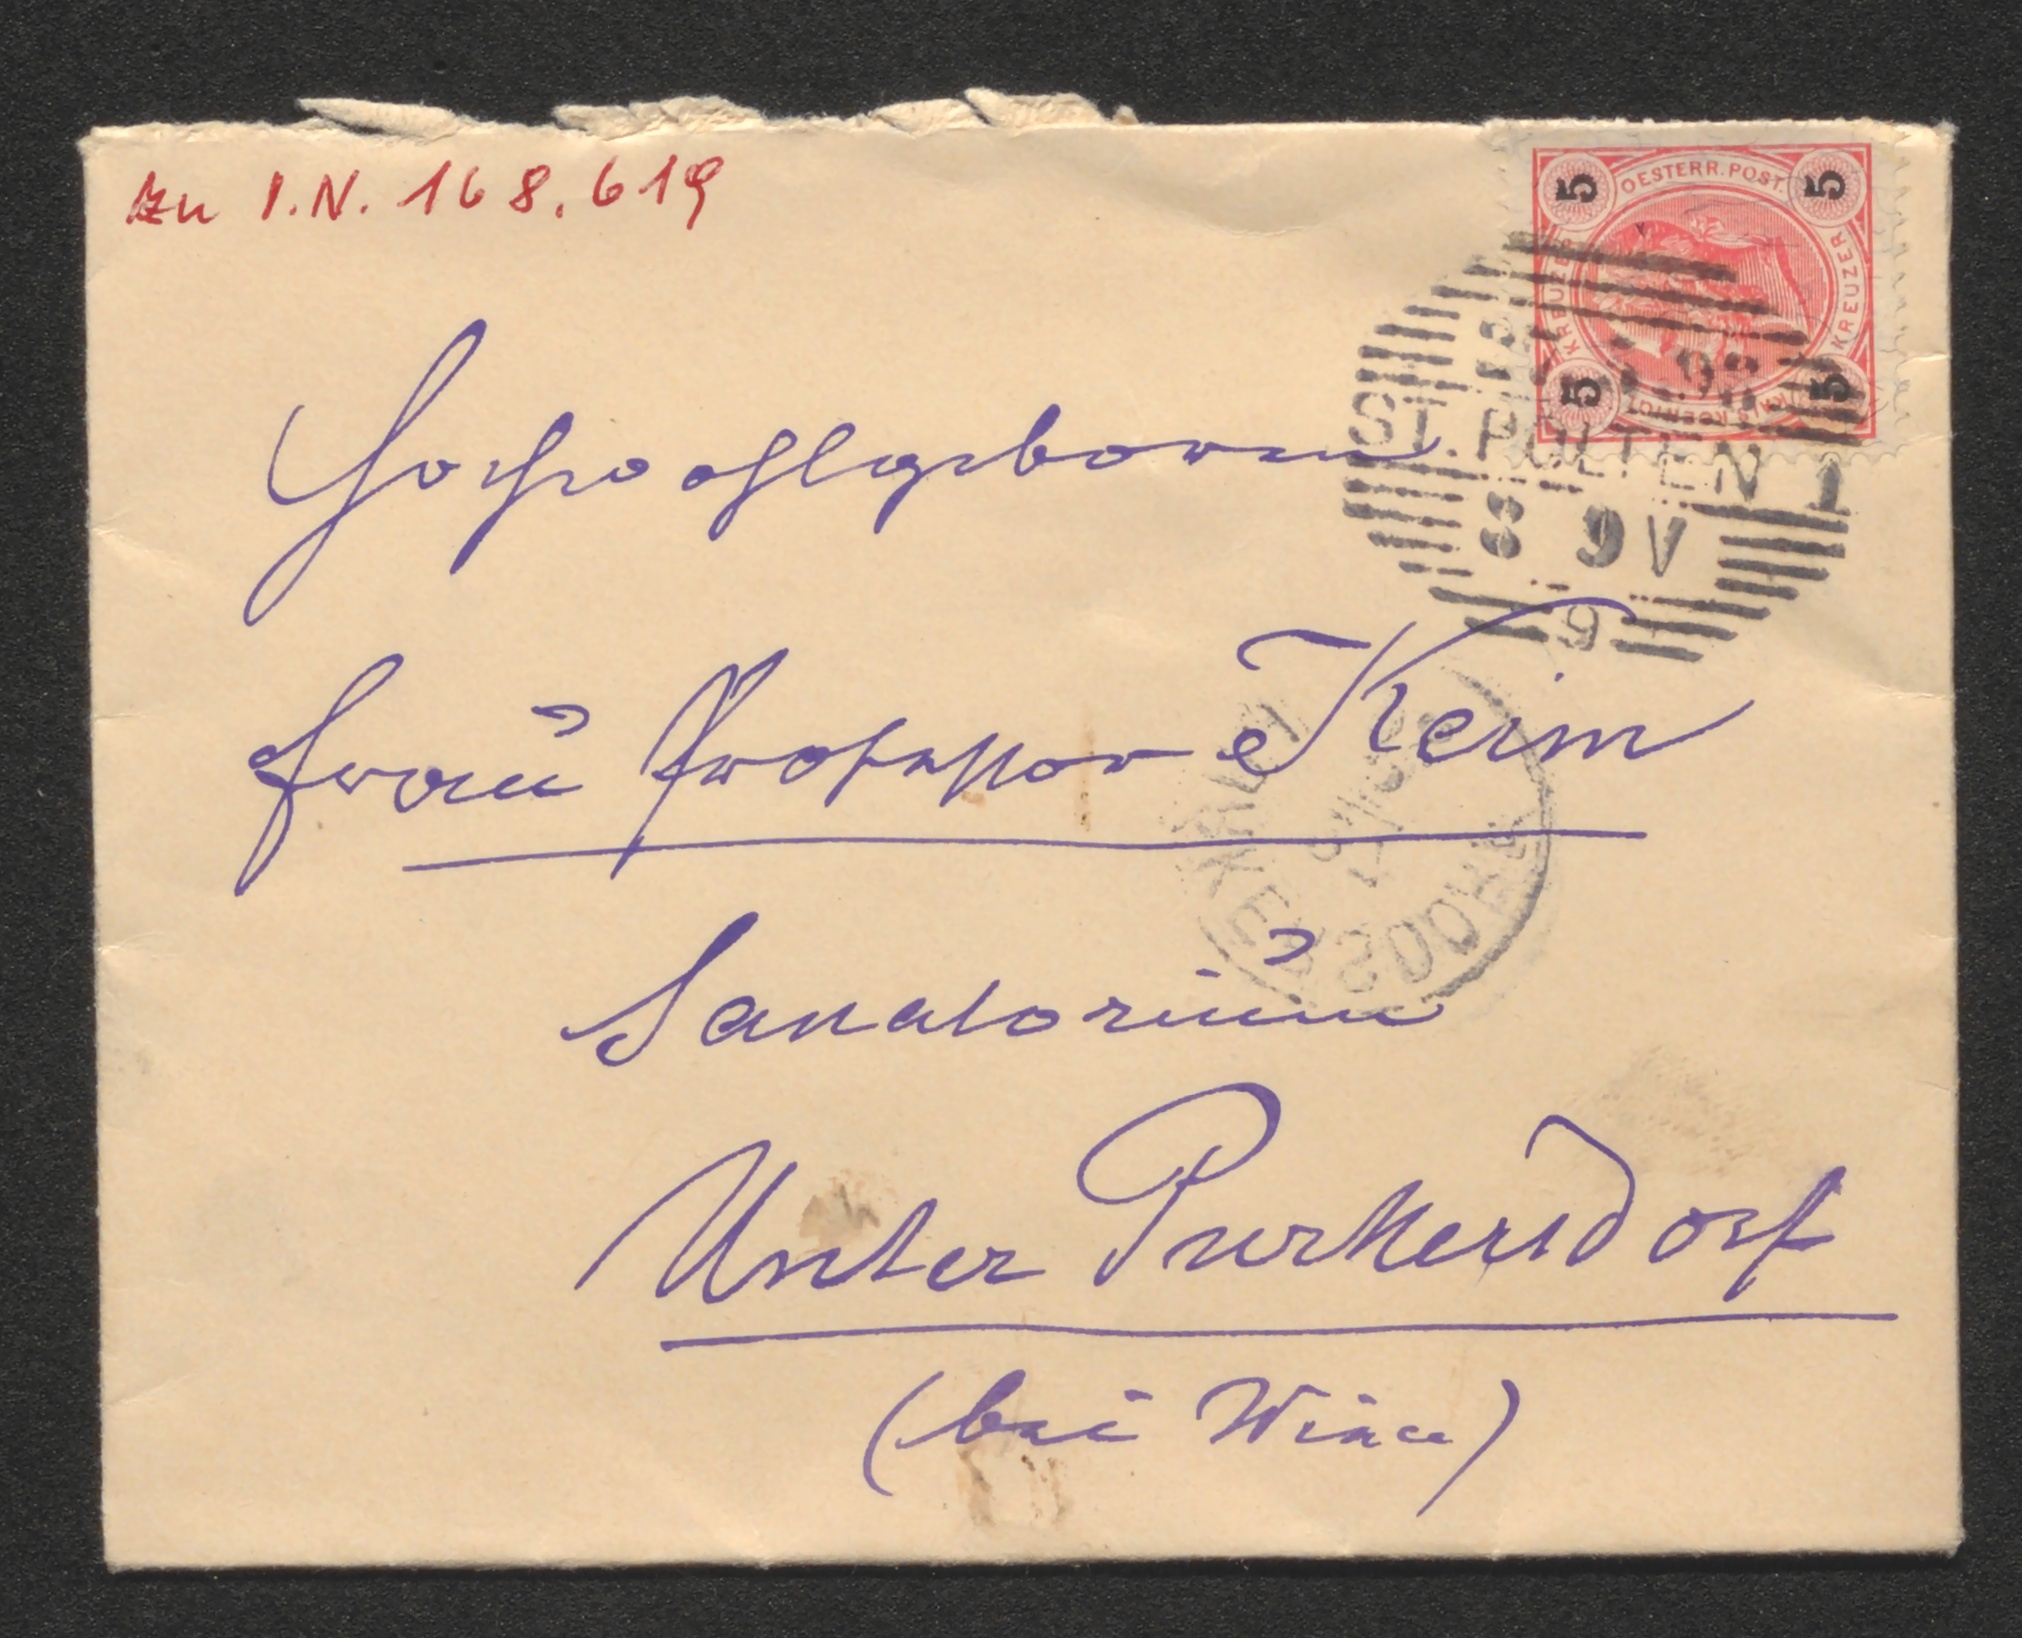 zu I.N. 168.619
OESTERR. POST.
5 5
KREUZER KREUZER
5 5
ST. PÖLTEN 1
8 9V
9
Hochwohlgeboren
Frau Professor Keim
Sanatorium
Unter Purkersdorf
(bei Wien)